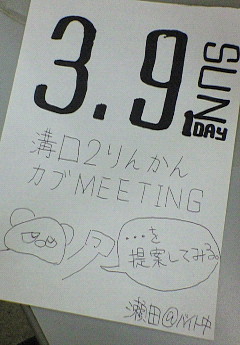 3.9
SUN
1DAY
溝口2りんかん
カブMEETING
…を
提案してみる。
瀬田@バイト中